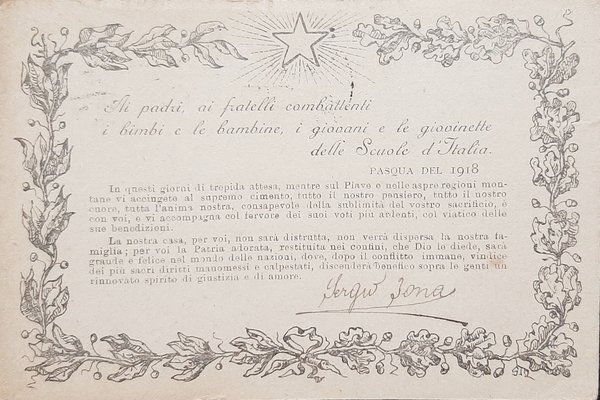 Ai padri, ai fratelli combattenti
i bimbi e le bambine, i giovani e le giovinette
delle Scuole d'Italia.
PASQUA DEL 1918
In questi giorni di trepida attesa, mentre sul Piave e nelle aspre regioni mon-
tane vi accingete al supremo cimento, tutto il nostro pensiero, tutto il nostro
cuore, tutta l'anima nostra, consapevole della sublimità del vostro sacrificio, è
con voi, e vi accompagna col fervore dei suoi voti più ardenti, col viatico delle
sue benedizioni.
La nostra casa, per voi, non sarà distrutta, non verrà dispersa la nostra fa-
miglia; per voi la Patria adorata, restituita nei confini, che Dio le diede, sarà
grande e felice nel mondo delle nazioni, dove, dopo il conflitto immane, vindice
dei più sacri diritti manomessi e calpestati, discenderà benefico sopra le genti un
rinnovato spirito di giustizia e di amore.
Sergio Jona